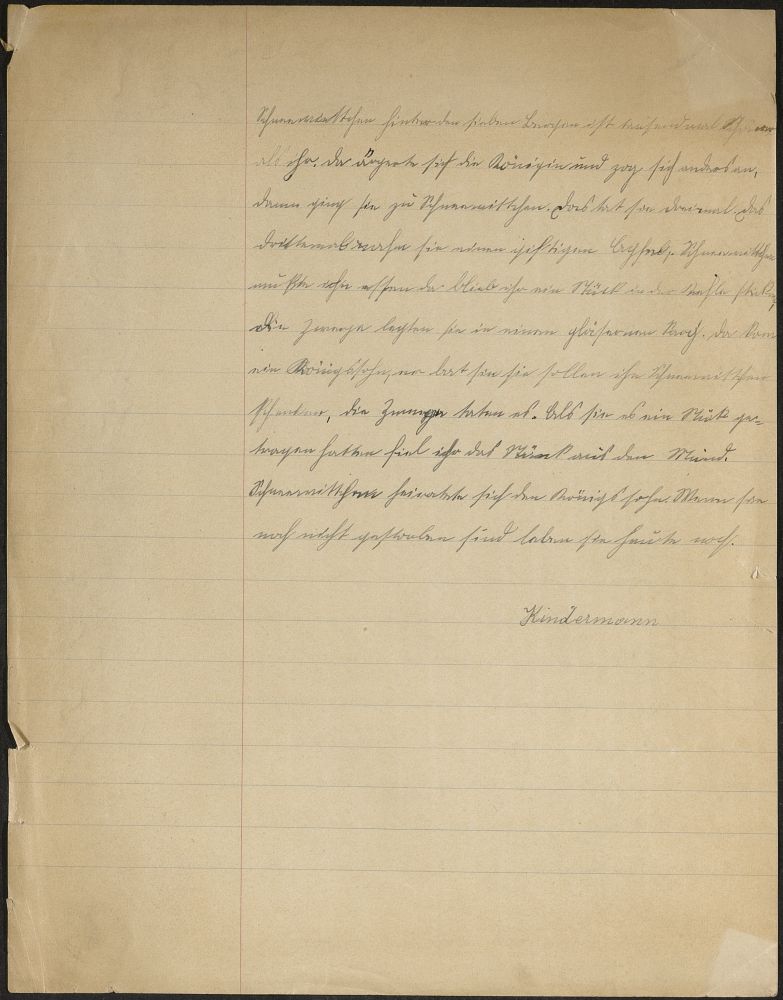 Schneewittchen hinter den sieben Bergen ist tausendmal Schöner
als ihr. Da ärgerte sich die Königin und zog sich anders an,
dann ging sie zu Schneewittchen. Das tat sie dreimal. Das
drittemal nahm sie einen giftigen Apfel, Schneewittchen
mußte ihn essen da blieb ihr ein Stück in der Kehle steck-
Die Zwerge legten sie in einen gläsernen Sarg. Da kam
ein Königssohn, er bat sie sie sollen ihm Schneewittchen
schenken, die Zwerge taten es. Als sie es ein Stük ge-
tragen hatten fiel ihr das Stück aus den Mund.
Schneewittchen heiratete sich den Königssohn. Wenn sie
noch nicht gestorben sind leben sie heute noch.
Kindermann